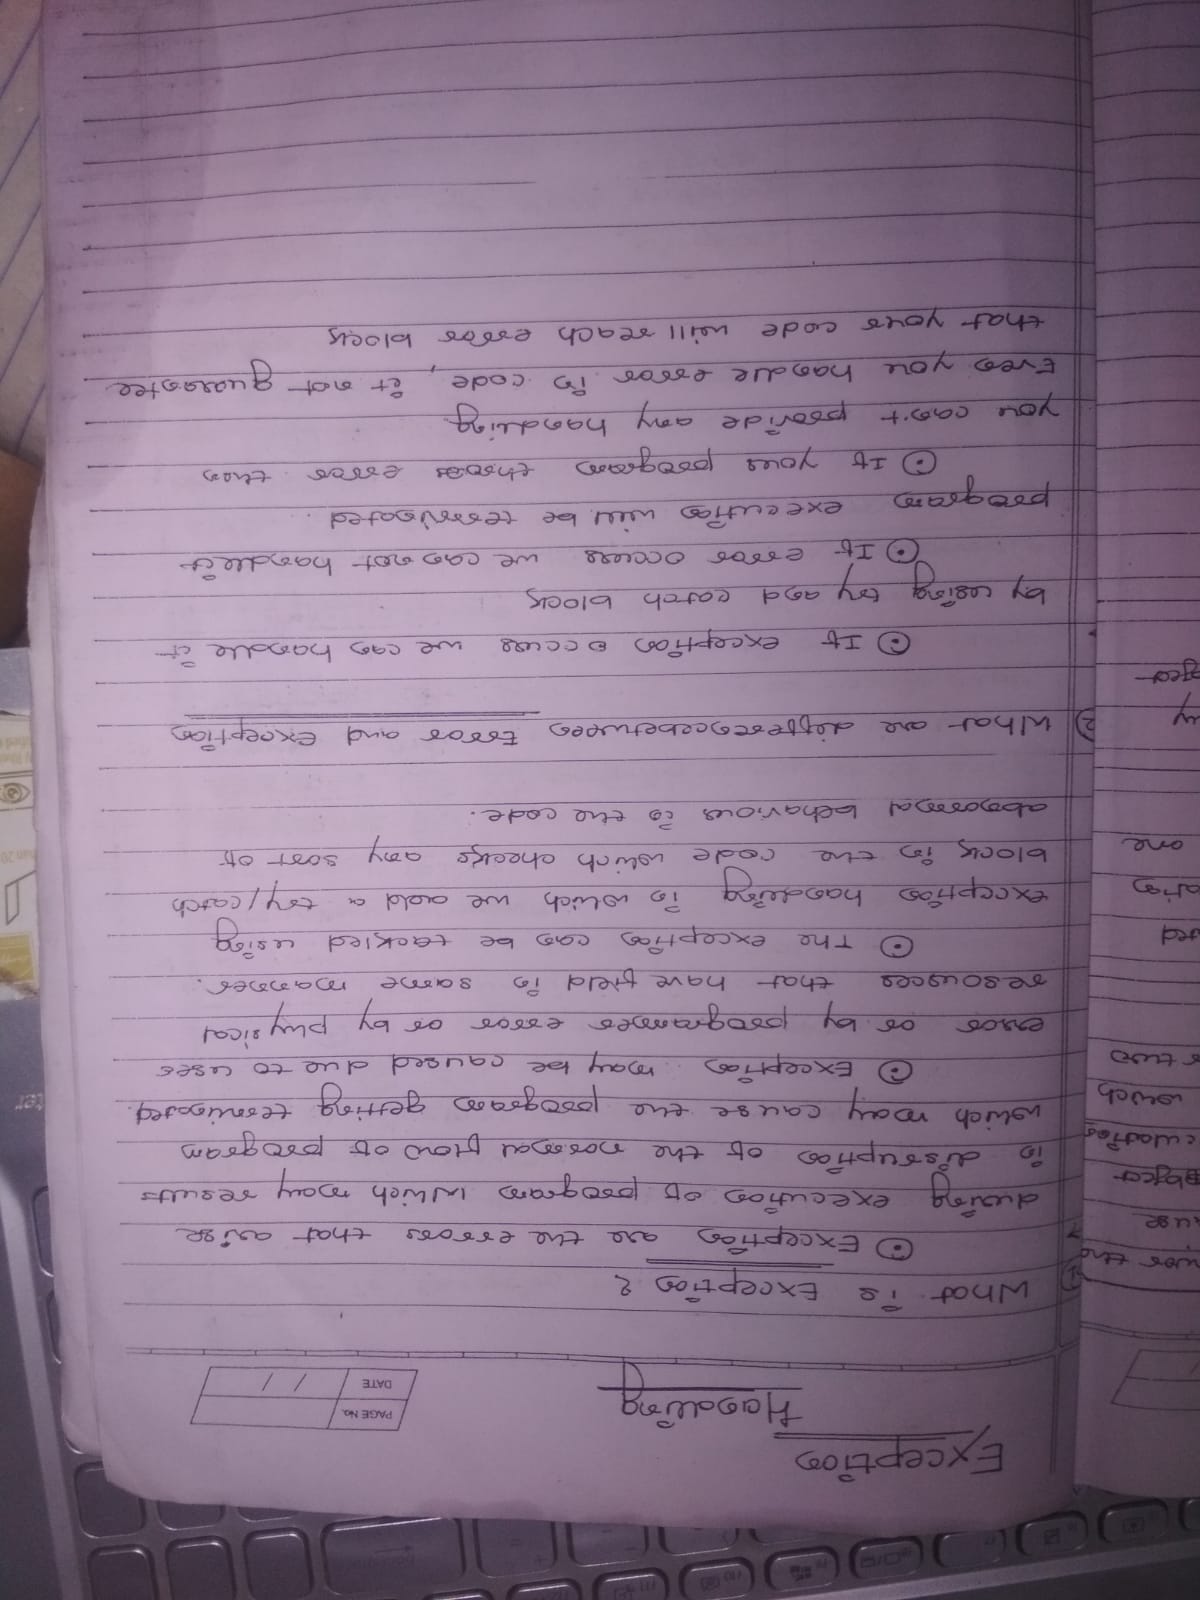 Exception
Handling
PAGE No.
DATE / /
1) What is Exception ?
⊙ Exception are the errors that arise
during execution of program which may results
in disruption of the normal flow of program
which may cause the program getting terminated.
⊙ Exception may be caused due to user
error or by programer error or by physical
resources that have field in same manner.
⊙ The exception can be tackled using
exception handling in which we add a try/catch
block in the code which checks any sort of
abnormal behaviour in the code.
2) What are differencebetween Error and Exception
⊙ If exception occurs we can handle it
by using try and catch block
⊙ If error occurs we can not handle it
program execution will be terminated.
⊙ If your program throws error then
you can't provide any handling
Even you handle error in code, it not guarantee
that your code will reach error block
which
one